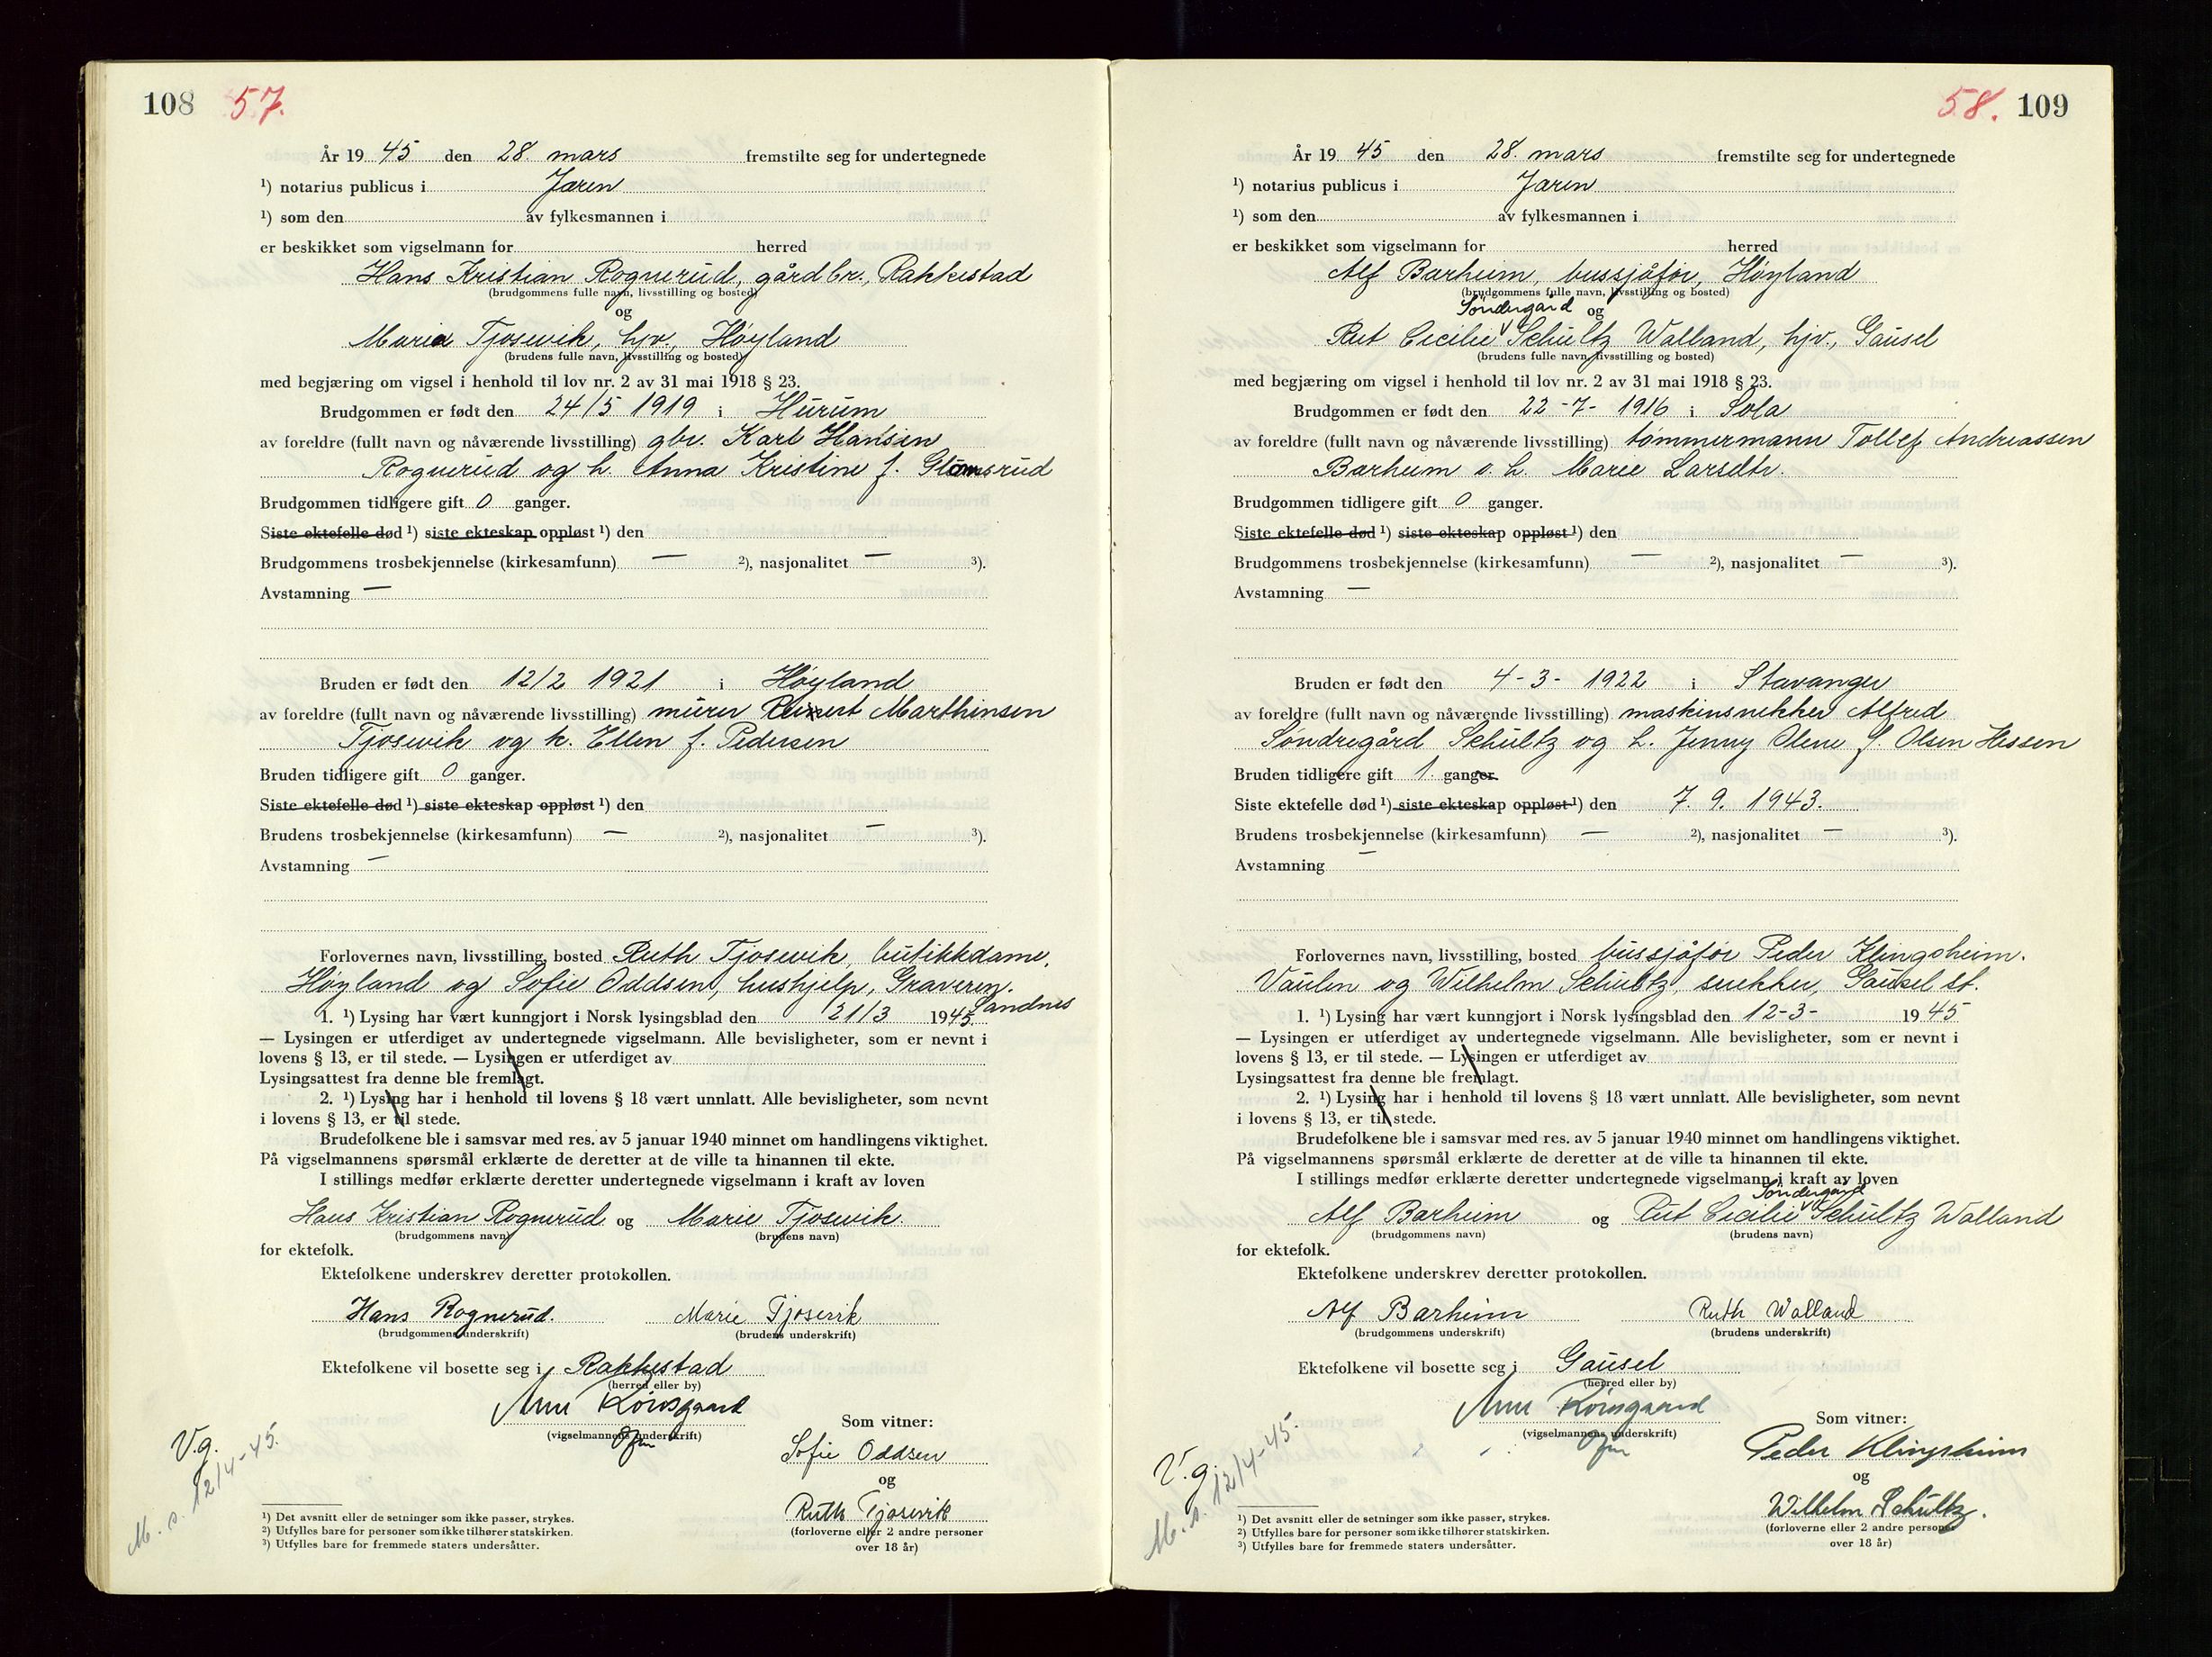 108 57.
År 19 45 den 28. mars fremstilte seg for undertegnede
¹) notarius publicus i Jæren
¹) som den av fylkesmannen i
er beskikket som vigselmann for herred
Hans Kristian Rognerud, gårdbr., Rakkestad
(brudgommens fulle navn, livsstilling og bosted)
og
Maria Tjosevik, hjv., Høyland
(brudens fulle navn, livsstilling og bosted)
med begjæring om vigsel i henhold til lov nr. 2 av 31 mai 1918 § 23.
Brudgommen er født den 24/5 1919 i Hurum
av foreldre (fullt navn og nåværende livsstilling) gbr. Karl Hansen
Rognerud og h. Anna Kristine f. Glomsrud
Brudgommen tidligere gift 0 ganger.
Siste ektefelle død ¹) siste ekteskap oppløst ¹) den
Brudgommens trosbekjennelse (kirkesamfunn) — ²), nasjonalitet — ³).
Avstamning —
Bruden er født den 12/2 1921 i Høyland
av foreldre (fullt navn og nåværende livsstilling) murer Marthinsen
Tjosevik og h. Ellen f. Pedersen
Bruden tidligere gift 0 ganger.
Siste ektefelle død ¹) siste ekteskap oppløst ¹) den
Brudens trosbekjennelse (kirkesamfunn) — ²), nasjonalitet — ³).
Avstamning —
Forlovernes navn, livsstilling, bosted Ruth Tjosevik, butikkdame,
Høyland og Sofie Oddsen, hushjelp, Graveren.
Sandnes
1. ¹) Lysing har vært kunngjort i Norsk lysingsblad den 21/3 1945.
— Lysingen er utferdiget av undertegnede vigselmann. Alle bevisligheter, som er nevnt i
lovens § 13, er til stede. — Lysingen er utferdiget av
Lysingsattest fra denne ble fremlagt.
2. ¹) Lysing har i henhold til lovens § 18 vært unnlatt. Alle bevisligheter, som nevnt
i lovens § 13, er til stede.
Brudefolkene ble i samsvar med res. av 5 januar 1940 minnet om handlingens viktighet.
På vigselmannens spørsmål erklærte de deretter at de ville ta hinannen til ekte.
I stillings medfør erklærte deretter undertegnede vigselmann i kraft av loven
Hans Kristian Rognerud og Marie Tjosevik.
(brudgommens navn) (brudens navn)
for ektefolk.
Ektefolkene underskrev deretter protokollen.
Hans Rognerud. Marie Tjosevik
(brudgommens underskrift) (brudens underskrift)
Ektefolkene vil bosette seg i Rakkestad
(herred eller by)
(vigselmannens underskrift)
Som vitner:
Sofie Oddsen
og
Ruth Tjosevik
(forloverne eller 2 andre personer
over 18 år)
V.g.
M. s. 12/4-45.
¹) Det avsnitt eller de setninger som ikke passer, strykes.
²) Utfylles bare for personer som ikke tilhører statskirken.
³) Utfylles bare for fremmede staters undersåtter.
58. 109
År 19 45 den 28. mars fremstilte seg for undertegnede
¹) notarius publicus i Jæren
¹) som den av fylkesmannen i
er beskikket som vigselmann for herred
Alf Barheim, bussjåfør, Høyland
(brudgommens fulle navn, livsstilling og bosted)
Søndergård og
Rut Cecilie Schultz Walland, hjv., Gausel
(brudens fulle navn, livsstilling og bosted)
med begjæring om vigsel i henhold til lov nr. 2 av 31 mai 1918 § 23.
Brudgommen er født den 22-7-1916 i Sola
av foreldre (fullt navn og nåværende livsstilling) tømmermann Tollef Andreassen
Barheim o. h. Marie Larsdtr.
Brudgommen tidligere gift 0 ganger.
Siste ektefelle død ¹) siste ekteskap oppløst ¹) den
Brudgommens trosbekjennelse (kirkesamfunn) — ²), nasjonalitet — ³).
Avstamning —
Bruden er født den 4-3-1922 i Stavanger
av foreldre (fullt navn og nåværende livsstilling) maskinsnekker Alfred
Søndregård Schultz og h. Jenny Olene f. Olsen Hessen
Bruden tidligere gift 1. ganger.
Siste ektefelle død ¹) siste ekteskap oppløst ¹) den 7. 9. 1943.
Brudens trosbekjennelse (kirkesamfunn) — ²), nasjonalitet — ³).
Avstamning —
Forlovernes navn, livsstilling, bosted bussjåfør Peder Klingsheim.
Vaulen og Wilhelm Schultz, snekker, Gausel st.
1. ¹) Lysing har vært kunngjort i Norsk lysingsblad den 12-3- 1945
— Lysingen er utferdiget av undertegnede vigselmann. Alle bevisligheter, som er nevnt i
lovens § 13, er til stede. — Lysingen er utferdiget av
Lysingsattest fra denne ble fremlagt.
2. ¹) Lysing har i henhold til lovens § 18 vært unnlatt. Alle bevisligheter, som nevnt
i lovens § 13, er til stede.
Brudefolkene ble i samsvar med res. av 5 januar 1940 minnet om handlingens viktighet.
På vigselmannens spørsmål erklærte de deretter at de ville ta hinannen til ekte.
I stillings medfør erklærte deretter undertegnede vigselmann i kraft av loven
Søndergård
Alf Barheim og Rut Cecilie Schultz Walland
(brudgommens navn) (brudens navn)
for ektefolk.
Ektefolkene underskrev deretter protokollen.
Alf Barheim Ruth Walland
(brudgommens underskrift) (brudens underskrift)
Ektefolkene vil bosette seg i Gausel
(herred eller by)
(vigselmannens underskrift)
Som vitner:
Peder Klingsheim
og
Wilhelm Schultz.
(forloverne eller 2 andre personer
over 18 år)
V.g.
M. s. 12/4-45.
¹) Det avsnitt eller de setninger som ikke passer, strykes.
²) Utfylles bare for personer som ikke tilhører statskirken.
³) Utfylles bare for fremmede staters undersåtter.